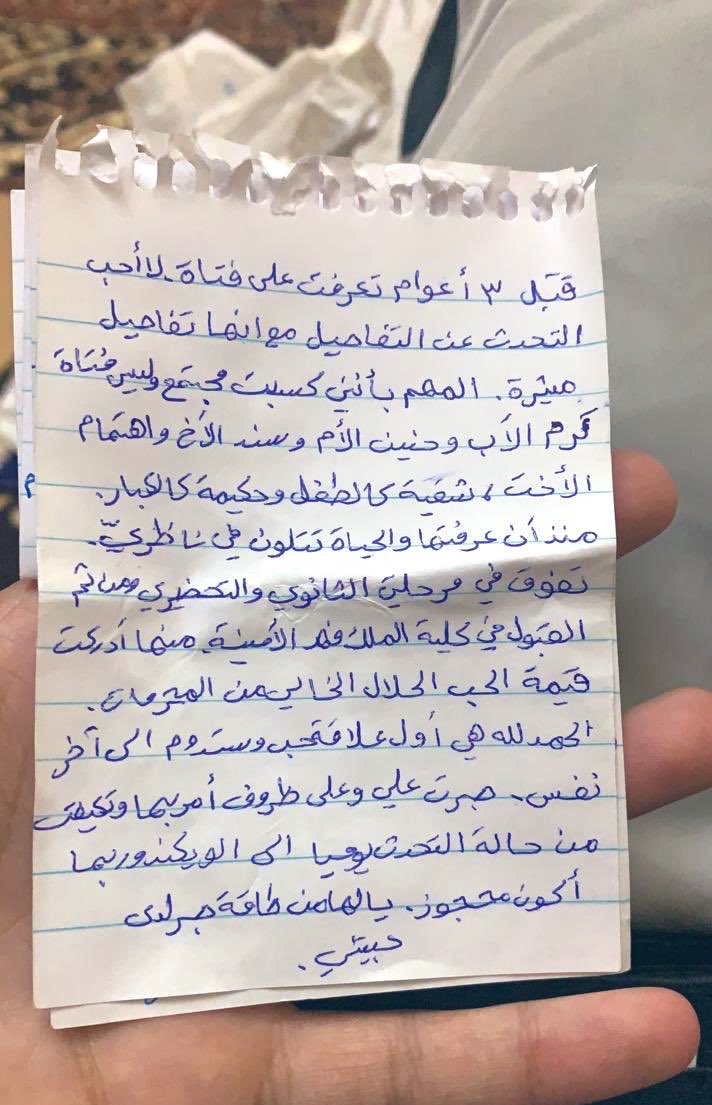 قبل ٣ أعوام تعرفت على فتاة. لا أحب
التحدث عن التفاصيل مع انها تفاصيل
مثيرة. المهم بأنني كسبت مجتمع وليس فتاة
كرم الأب وحنين الأم وسند الأخ واهتمام
الأخت، شقية كالطفل وحكيمة كالكبار.
منذ أن عرفتها والحياة تتلون في ناظريّ.
تفوق في مرحلتي الثانوي والتحضيري ومن ثم
القبول في كلية الملك فهد الأمنية. منها أدركت
قيمة الحب الحلال الخالي من المحرمات.
الحمدلله هي أول علاقة حب وستدوم الى آخر
نفس. صبرت علي وعلى ظروف أمر بها وتكيفت
من حالة التحدث يوميا الى الويكند وربما
أكون محجوز. يالها من طاقة صبر لدى
حبيبتي.
م